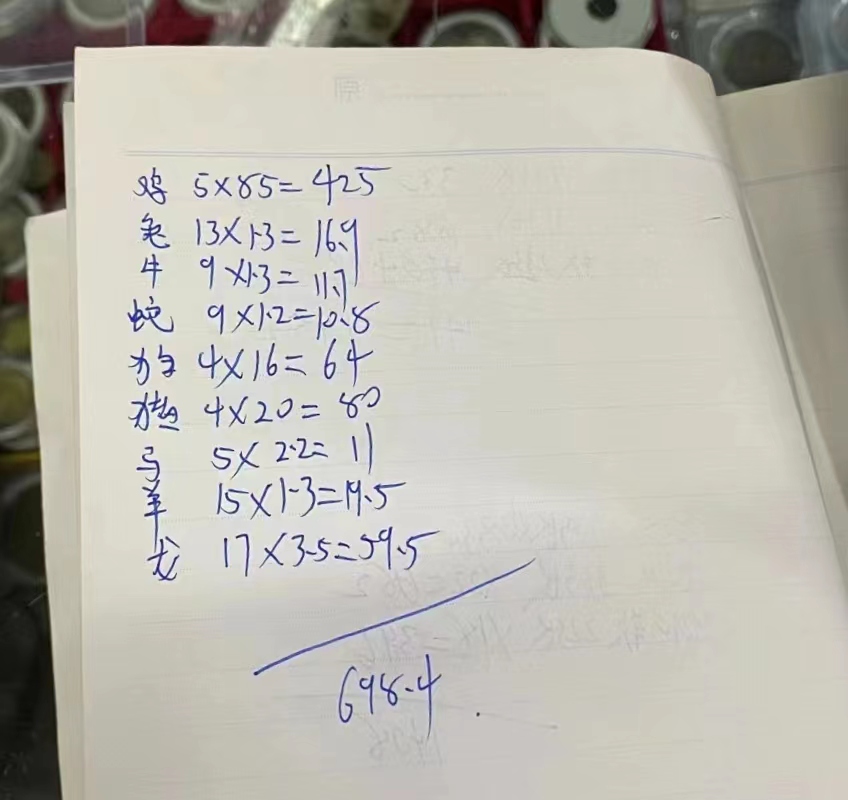 鸡 5×85=425
兔 13×1.3=16.9
牛 9×1.3=11.7
蛇 9×1.2=10.8
狗 4×16=64
猪 4×20=80
马 5×2.2=11
羊 15×1.3=19.5
龙 17×3.5=59.5
698.4